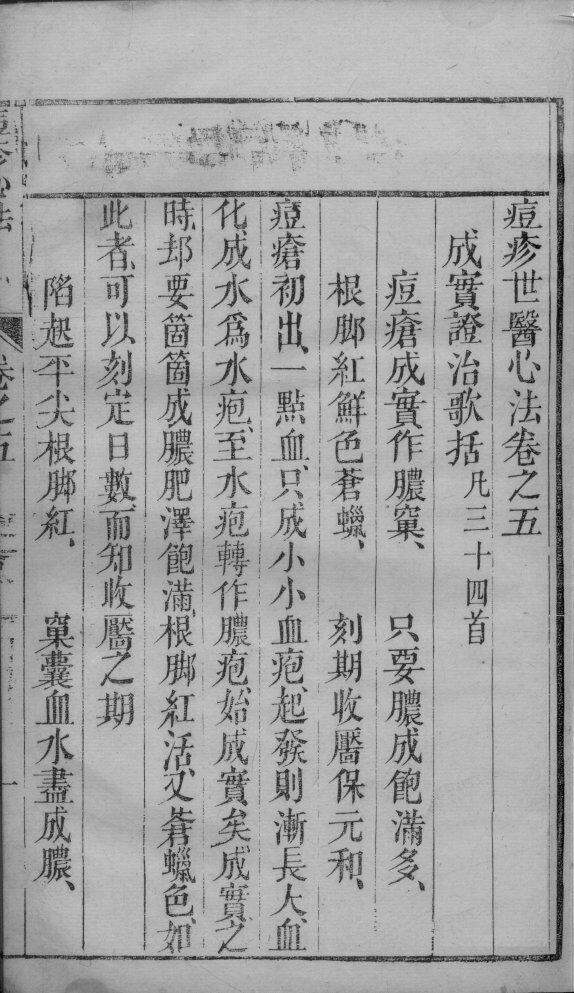 痘疹世醫心法卷之五
成實證治歌括凡三十四首
痘瘡成實作膿窠、 只要膿成飽滿多、
根脚紅鮮色蒼蠟、 刻期收靨保元和、
痘瘡初出、一點血、只成小小血疱、起發則漸長大、血
化成水爲水疱、至水疱轉作膿疱、始成實矣、成實之
時、却要箇箇成膿肥澤飽滿、根脚紅活、又蒼蠟色、如
此者、可以刻定日數而知收靨之期
陷起平尖根脚紅、 窠囊血水盡成膿、
卷之五
一